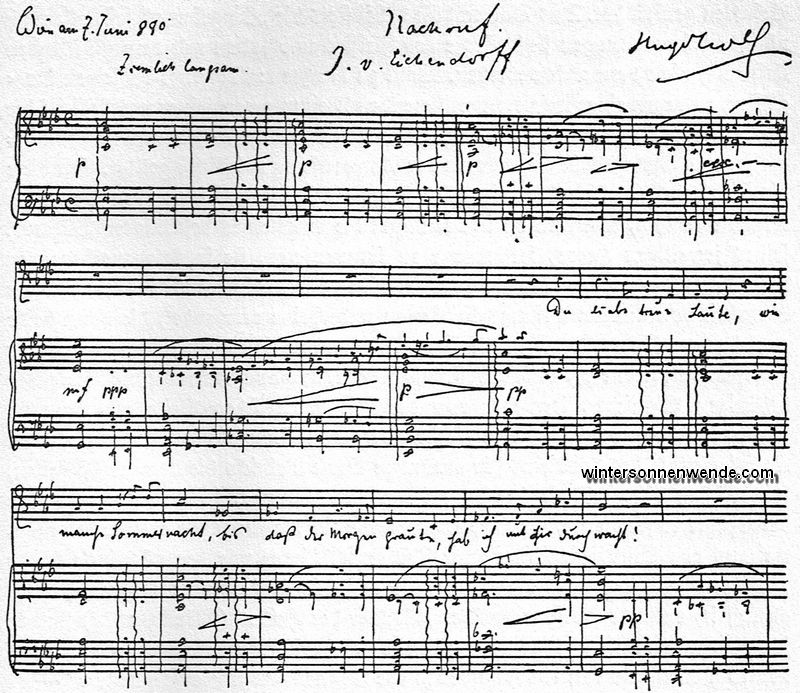 Wien am 7. Juni 880
Nachruf.
Ziemlich langsam.
J. v. Eichendorff
Hugo Wolf
p p p cresc.
Du liebe treue Laute, wie
mf ppp p pp
wintersonnenwende.com
manche Sommernacht, bis daß der Morgen graute, hab ich mit dir durchwacht!
pp